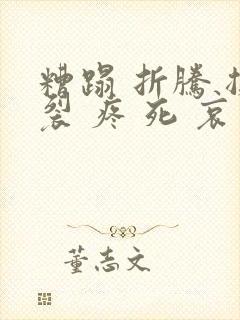 糟蹋 折騰
裂 疼 死 哀
董志文